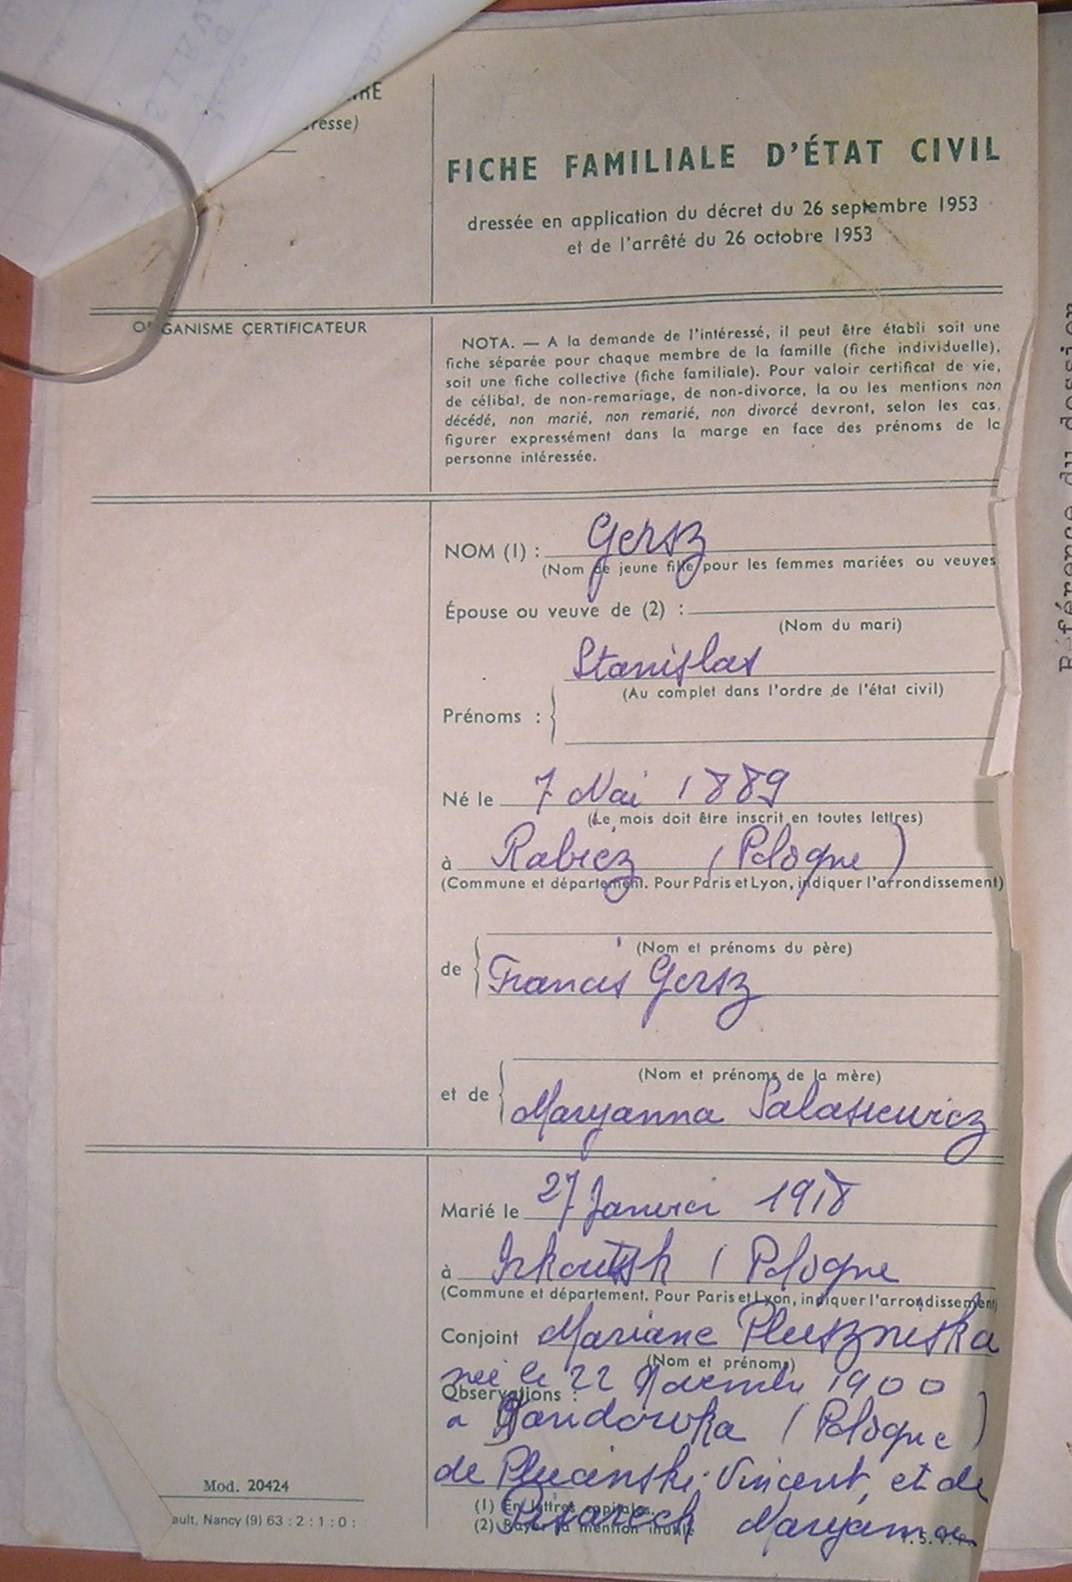 FICHE FAMILIALE D'ÉTAT CIVIL
dressée en application du décret du 26 septembre 1953
et de l'arrêté du 26 octobre 1953
resse)
ORGANISME CERTIFICATEUR
NOTA. — A la demande de l'intéressé, il peut être établi soit une
fiche séparée pour chaque membre de la famille (fiche individuelle),
soit une fiche collective (fiche familiale). Pour valoir certificat de vie,
de célibat, de non-remariage, de non-divorce, la ou les mentions non
décédé, non marié, non remarié, non divorcé devront, selon les cas,
figurer expressément dans la marge en face des prénoms de la
personne intéressée.
NOM (1) : Gersz
(Nom de jeune fille pour les femmes mariées ou veuves
Épouse ou veuve de (2) :
(Nom du mari)
Stanislas
(Au complet dans l'ordre de l'état civil)
Prénoms :
Né le 7 Mai 1889
(Le mois doit être inscrit en toutes lettres)
à Rabiez (Pologne)
(Commune et département. Pour Paris et Lyon, indiquer l'arrondissement)
(Nom et prénoms du père)
de Francis Gersz
(Nom et prénoms de la mère)
et de Maryanna Salasiewicz
Marié le 27 Janvier 1918
à Irkoutsk (Pologne
(Commune et département. Pour Paris et Lyon, indiquer l'arrondissement)
Conjoint Mariane
(Nom et prénoms)
née le 22 Novembre 1900
Observations :
a (Pologne)
de Plucinski Vincent, et de
(1) En lettres capitales.
Maryanna
(2) Rayer la mention inutile
T.S.V.P.
Mod. 20424
ault, Nancy (9) 63 : 2 : 1 : 0 :
Référence du dossier